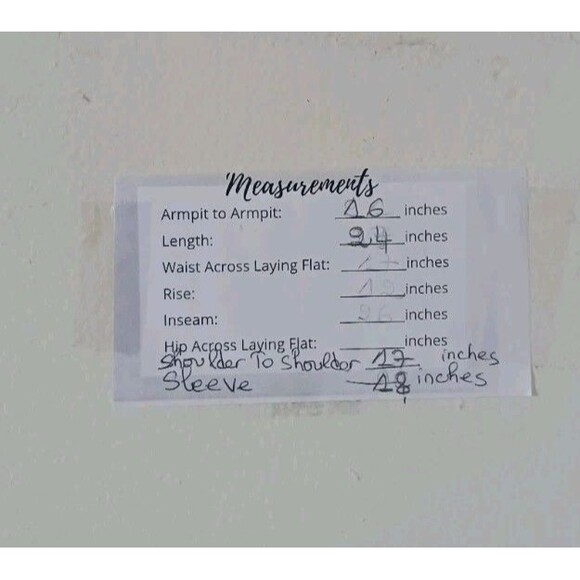 Measurements
Armpit to Armpit: 16 inches
Length: 24 inches
Waist Across Laying Flat: inches
Rise: inches
Inseam: inches
Hip Across Laying Flat: inches
Shoulder To Shoulder 17 inches
Sleeve 18 inches